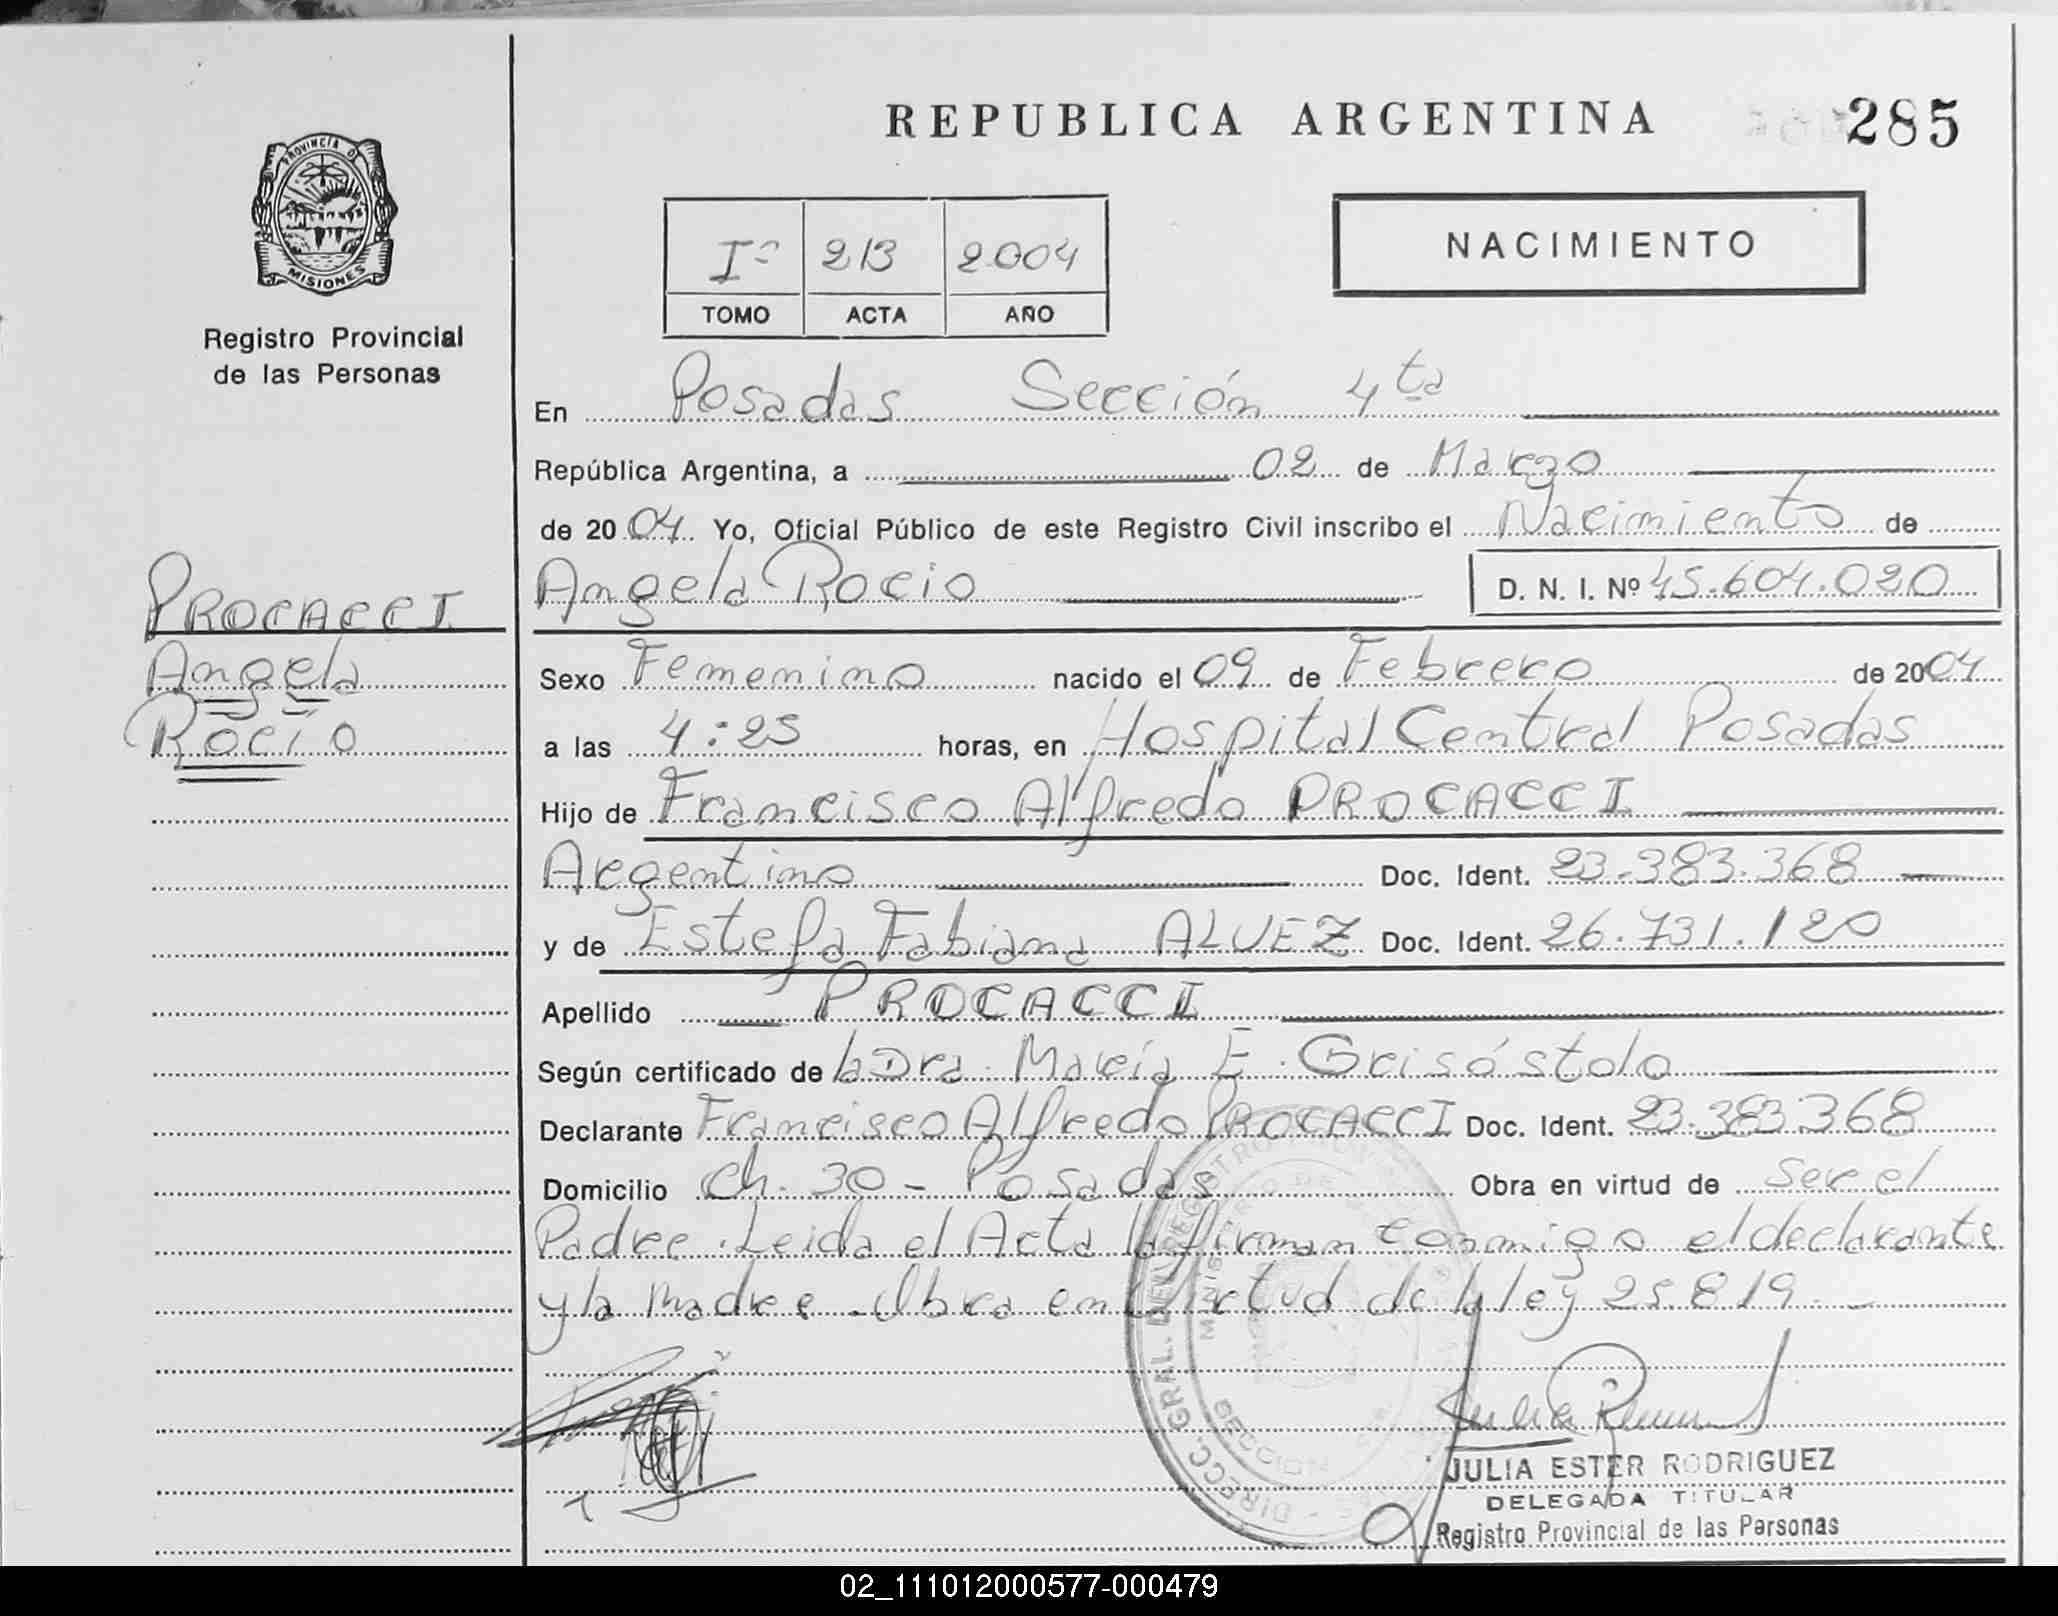 REPUBLICA ARGENTINA
285
PROVINCIA DE
MISIONES
Registro Provincial
de las Personas
Iº 213 2004
TOMO ACTA AÑO
NACIMIENTO
En Posadas Sección 4ta
República Argentina, a 02 de Marzo
de 2004. Yo, Oficial Público de este Registro Civil inscribo el Nacimiento de
PROCACCI
Angela
Rocío
Angela Rocio D. N. I. Nº 45.604.020
Sexo Femenino nacido el 09 de Febrero de 2004
a las 4:25 horas, en Hospital Central Posadas
Hijo de Francisco Alfredo PROCACCI
Argentino Doc. Ident. 23.383.368
y de Estefa Fabiana ALVEZ Doc. Ident. 26.731.120
Apellido PROCACCI
Según certificado de la Dra. María E. Grisóstolo
Declarante Francisco Alfredo PROCACCI Doc. Ident. 23.383.368
Domicilio Ch. 30 - Posadas Obra en virtud de ser el
Padre. Leida el Acta la firman conmigo el declarante
y la madre. Obra en virtud de la ley 25.819.-
DIRECC. GRAL. DEL REGISTRO
JULIA ESTER RODRIGUEZ
DELEGADA TITULAR
Registro Provincial de las Personas
02_111012000577-000479